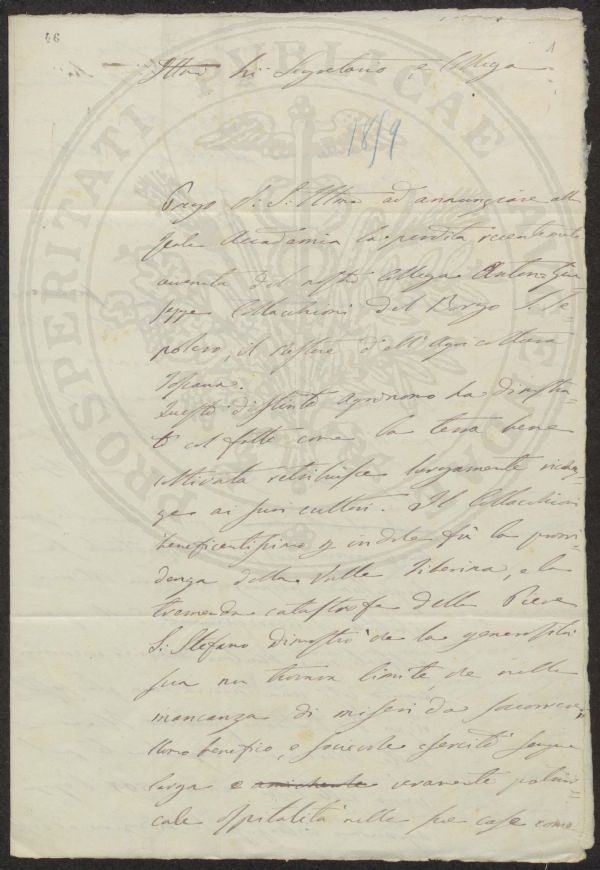 46
1
Segretario e Collega
1859
Prego V: S: Illma ad annunziare alla
Reale Accademia la perdita recentemente
avvenuta del nostro Collega Anton Giu=
seppe Collacchioni del Borgo S. Se=
polcro, il Nestore dell'Agricoltura
Toscana.
Questo distinto Agronomo ha dimostra=
to col fatto come la terra bene
coltivata retribuisce largamente ricchez=
ze ai suoi cultori. Il Collacchioni
beneficentissimo p indole fù la provvi=
denza della Valle Tiberina, e la
tremenda catastrofe della Pieve
S: Stefano dimostrò che la generosità
sua non trovava limite che nella
mancanza di miseri da soccorrere,
Uomo benefico, e socievole esercitò sempre
larga e amichevole veramente patriar=
cale Ospitalità nelle sue case come
PROSPERITATI PUBLICAE AUGENDAE